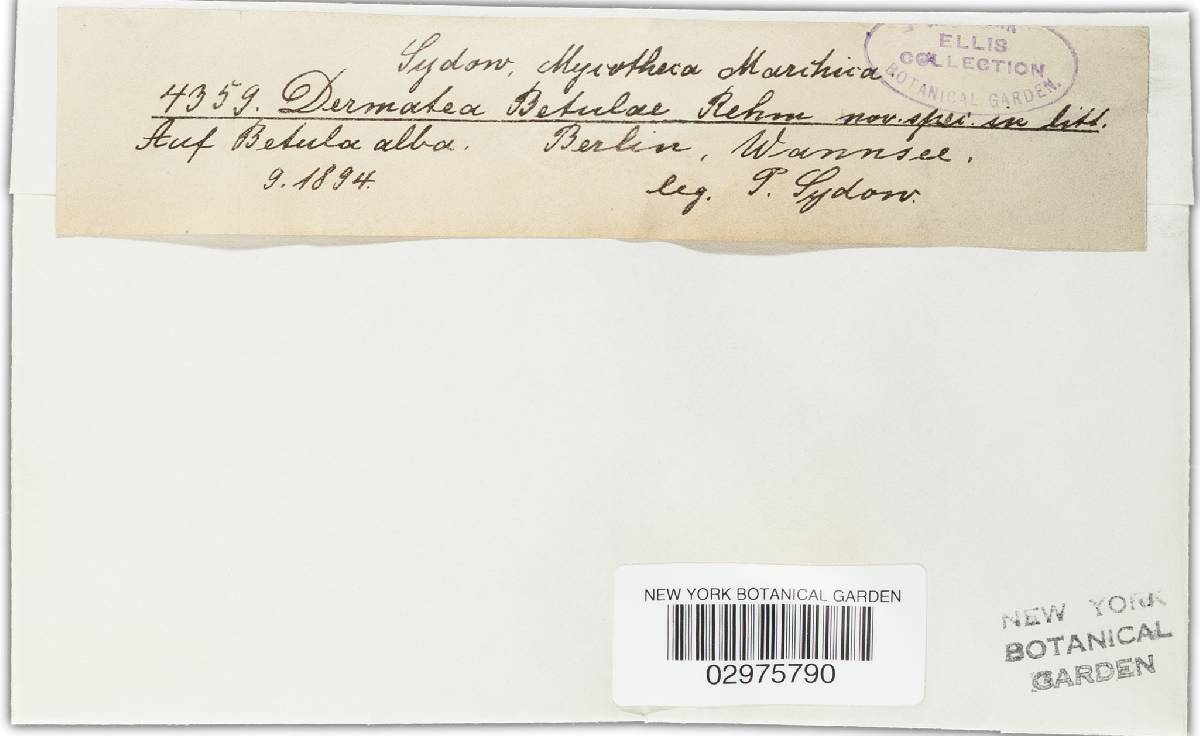 Sydow, Mycotheca Marchica
ELLIS
COLLECTION
BOTANICAL GARDEN.
4359. Dermatea Betulae Rehm nov. spei. in litt.
Auf Betula alba. Berlin, Wannsee.
9. 1894. leg. P. Sydow.
NEW YORK BOTANICAL GARDEN
02975790
NEW YORK
BOTANICAL
GARDEN